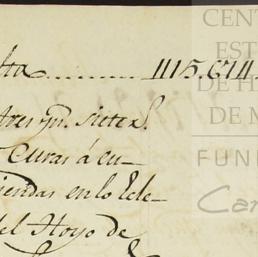 lta ........... 1115.674.
tres qn. siete
Curas á cu-
iendas en lo Ecle-
del Hoyo de
CENT
EST
DE H
DE M
FUN
Car